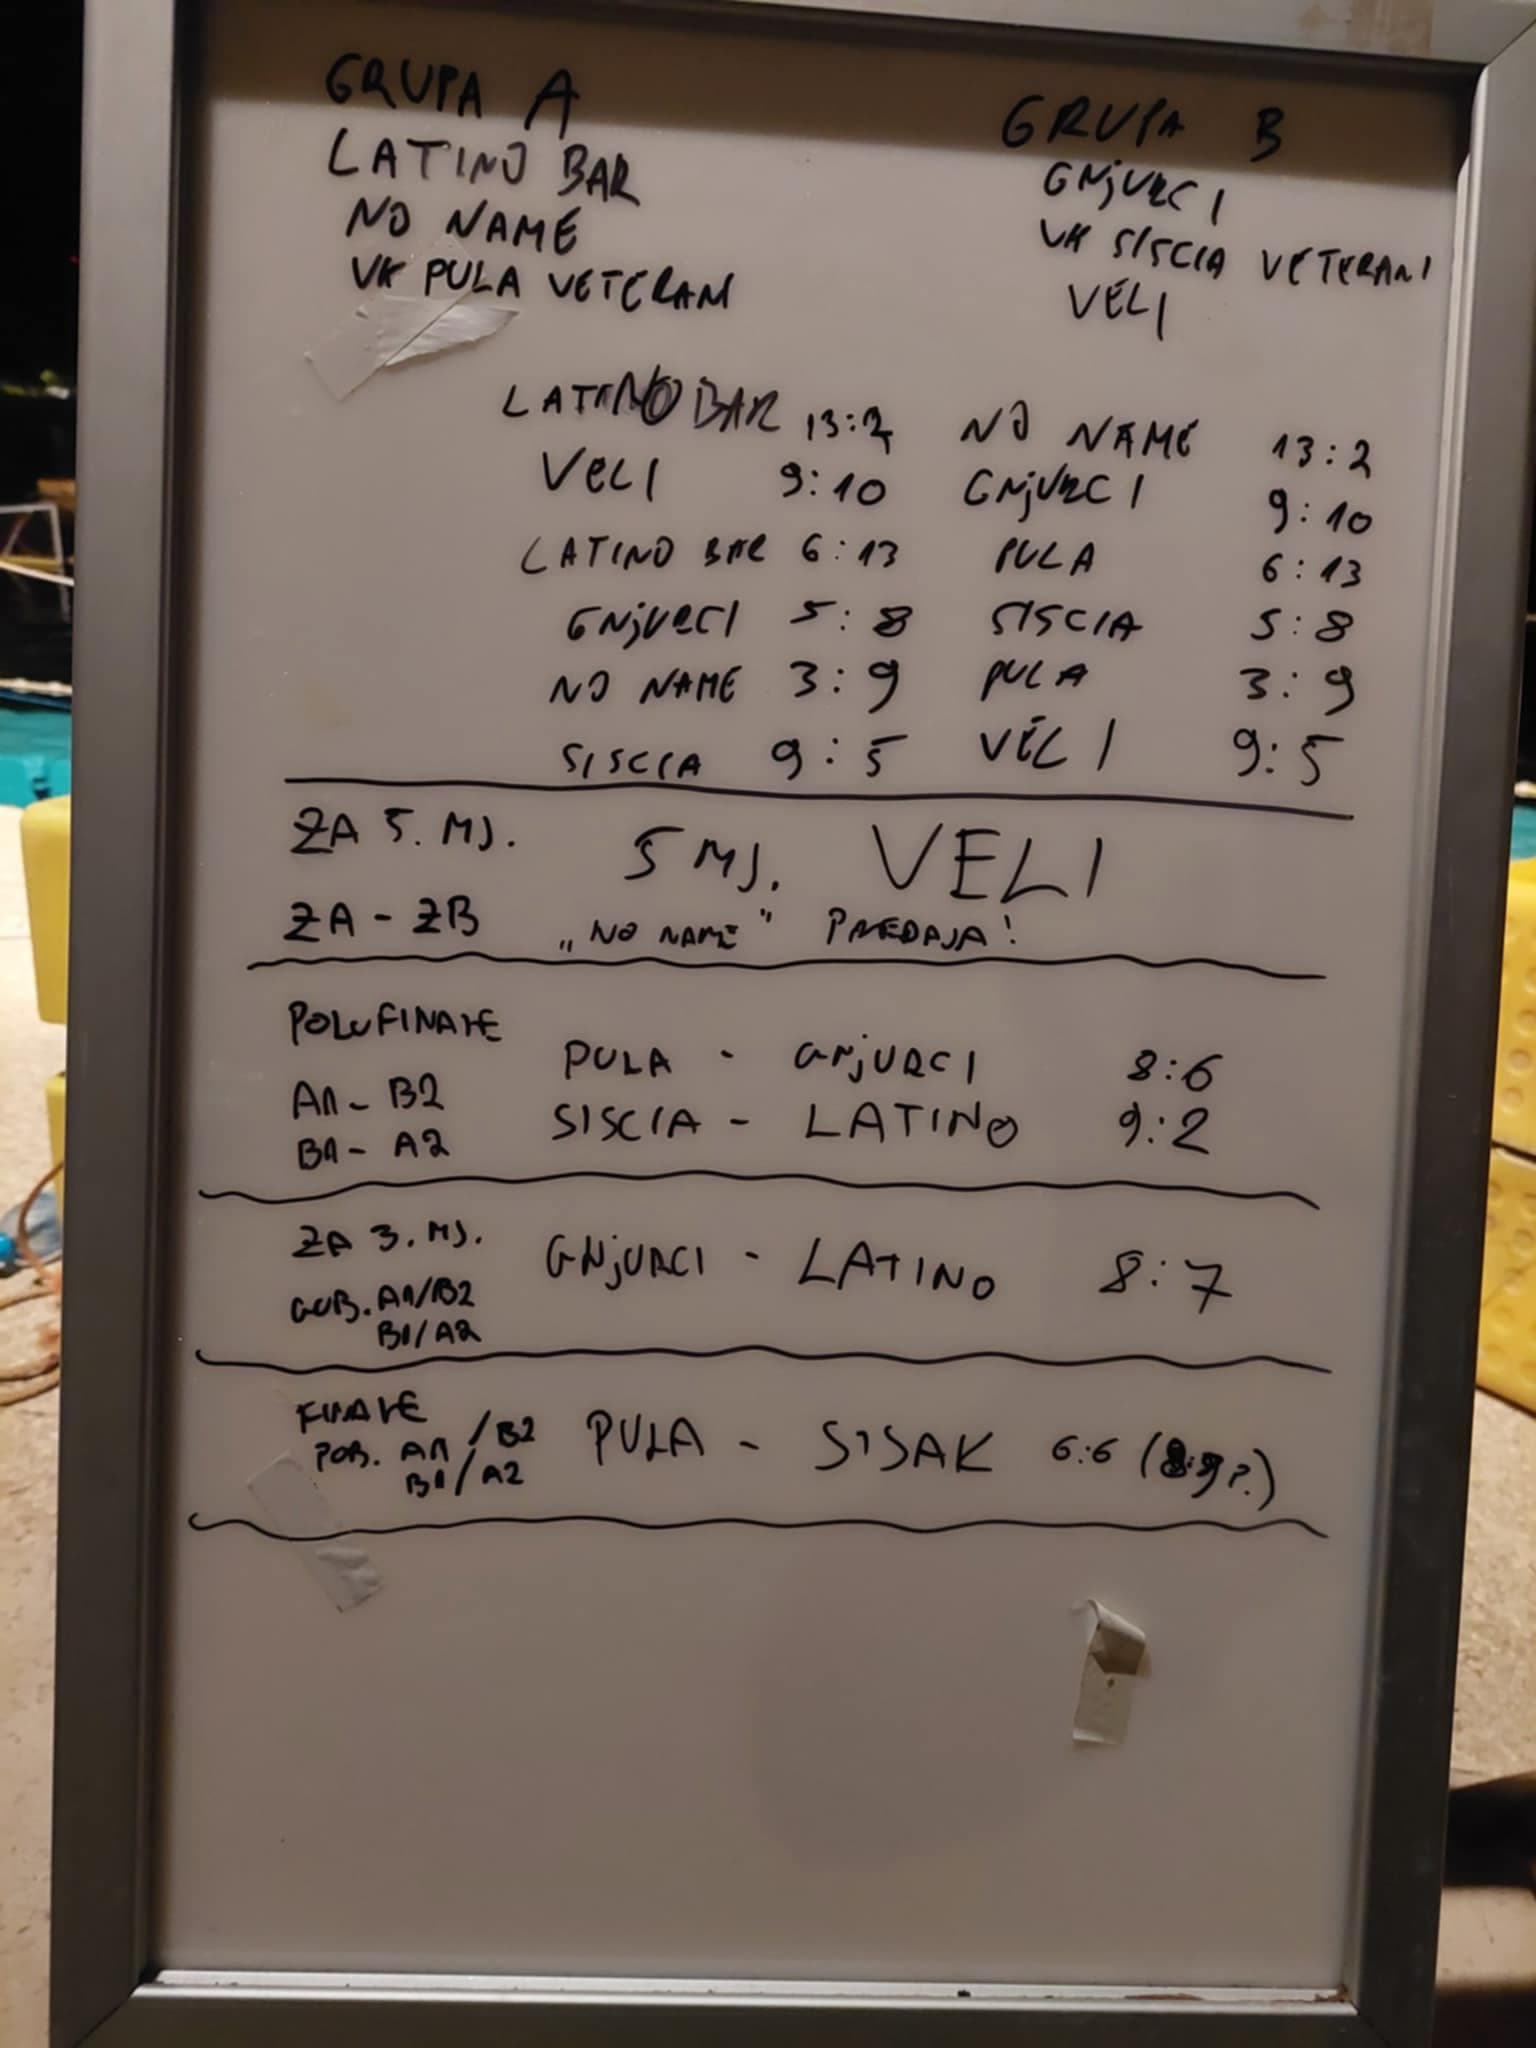 GRUPA A
LATINO BAR
NO NAME
VK PULA VETERANI
GRUPA B
GNJURCI
VK SISCIA VETERANI
VELI
LATINO BAR 13:2 NO NAME 13:2
VELI 9:10 GNJURCI 9:10
LATINO BAR 6:13 PULA 6:13
GNJURCI 5:8 SISCIA 5:8
NO NAME 3:9 PULA 3:9
SISCIA 9:5 VELI 9:5
ZA 5. MJ. 5 MJ. VELI
ZA - ZB „NO NAME" PREDAJA!
POLUFINALE
PULA - GNJURCI 8:6
A1 - B2
SISCIA - LATINO 9:2
B1 - A2
ZA 3. MJ. GNJURCI - LATINO 8:7
GUB. A1/B2
B1/A2
FINALE
POB. A1/B2 PULA - SISAK 6:6
B1/A2